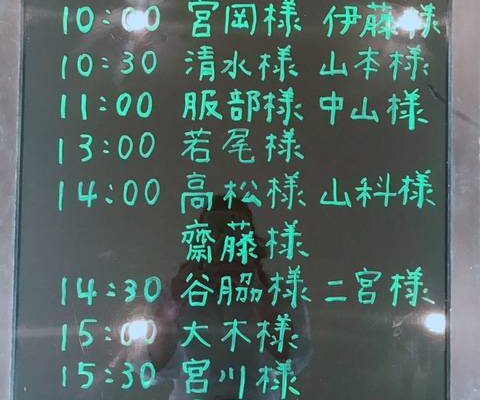 10:00 宮岡様 伊藤様
10:30 清水様 山本様
11:00 服部様 中山様
13:00 若尾様
14:00 高松様 山科様
齋藤様
14:30 谷脇様 二宮様
15:00 大木様
15:30 宮川様